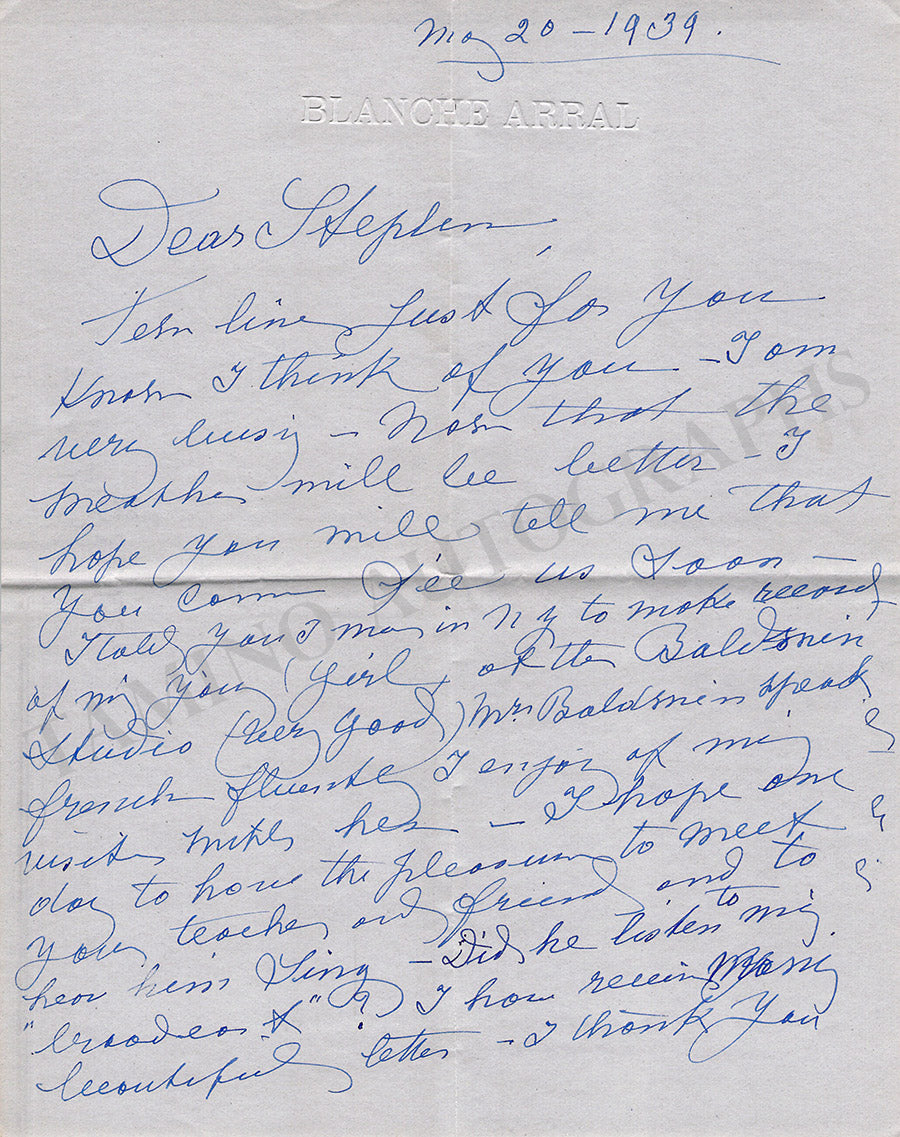 May 20 - 1939.
BLANCHE ARRAL
Dear Stephen,
Few lines just for you
Know I think of you - I am
very busy - Now that the
weather will be better - I
hope you will tell me that
you come see us soon -
I told you I was in N Y to make record
of my young girl, at the Baldwin
Studio (very good) Mrs Baldwin speak
french fluently I enjoy of my
visites with her - I hope one
day to have the pleasure to meet
your teacher and friend and to
hear him sing - Did he listen to my
"broadcast"? I have receive many
beautiful letter - I thank you
TAMINO AUTOGRAPHS